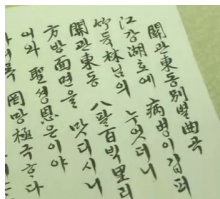 關관東동別별曲곡
江강湖호에 病병이 깁퍼
竹듁林님의 누엇더니
關관東동 八팔百백里리
方방面면을 맛디시니
어와 聖셩恩은이야
罔망極극ᄒᆞ다